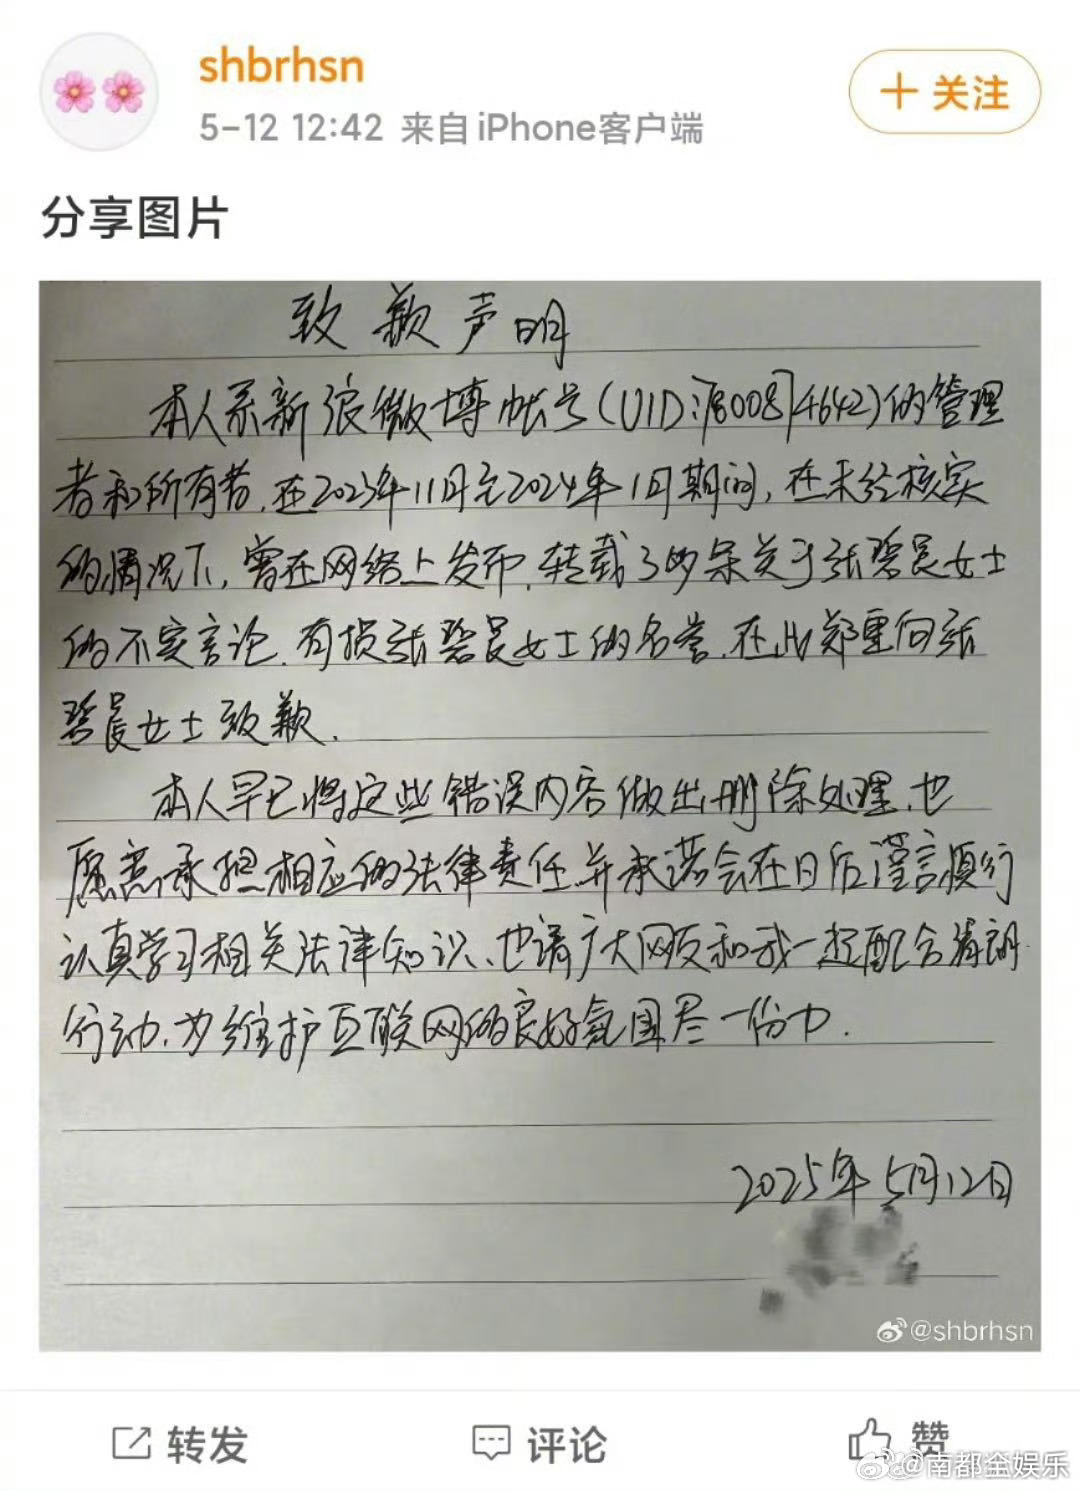 shbrhsn
5-12 12:42 来自iPhone客户端
+关注
分享图片
致歉声明
本人系新浪微博帐号(UID:7800874642)的管理
者和所有者,在2023年11月至2024年1月期间,在未经核实
的情况下,曾在网络上发布,转载了两条关于张碧晨女士
的不实言论,有损张碧晨女士的名誉,在此郑重向张
碧晨女士致歉.
本人早已将这些错误内容做出删除处理,也
愿意承担相应的法律责任,并承诺会在日后谨言慎行
认真学习相关法律知识、也请广大网友和我一起配合清朗
行动,为维护互联网的良好氛围尽一份力.
2025年5月12日
@shbrhsn
转发
评论
赞
@南都全娱乐